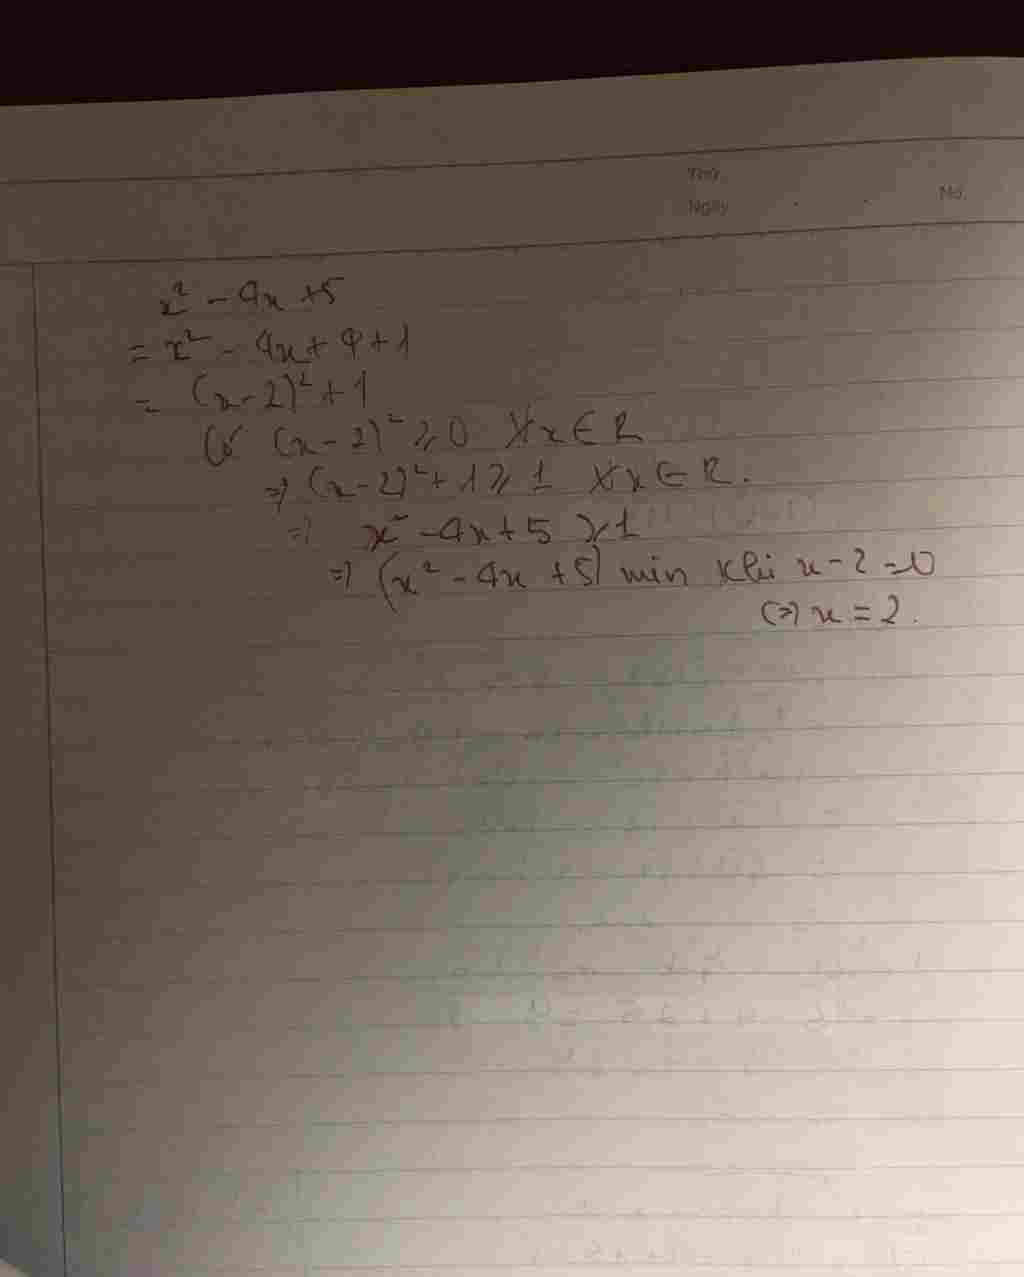 Thứ
Ngày
No.
x² - 4x + 5
= x² - 4x + 4 + 1
= (x - 2)² + 1
Có (x - 2)² ≥ 0 ∀x ∈ R
=> (x - 2)² + 1 ≥ 1 ∀x ∈ R.
=> x² - 4x + 5 ≥ 1
=> (x² - 4x + 5) min khi x - 2 = 0
<=> x = 2.